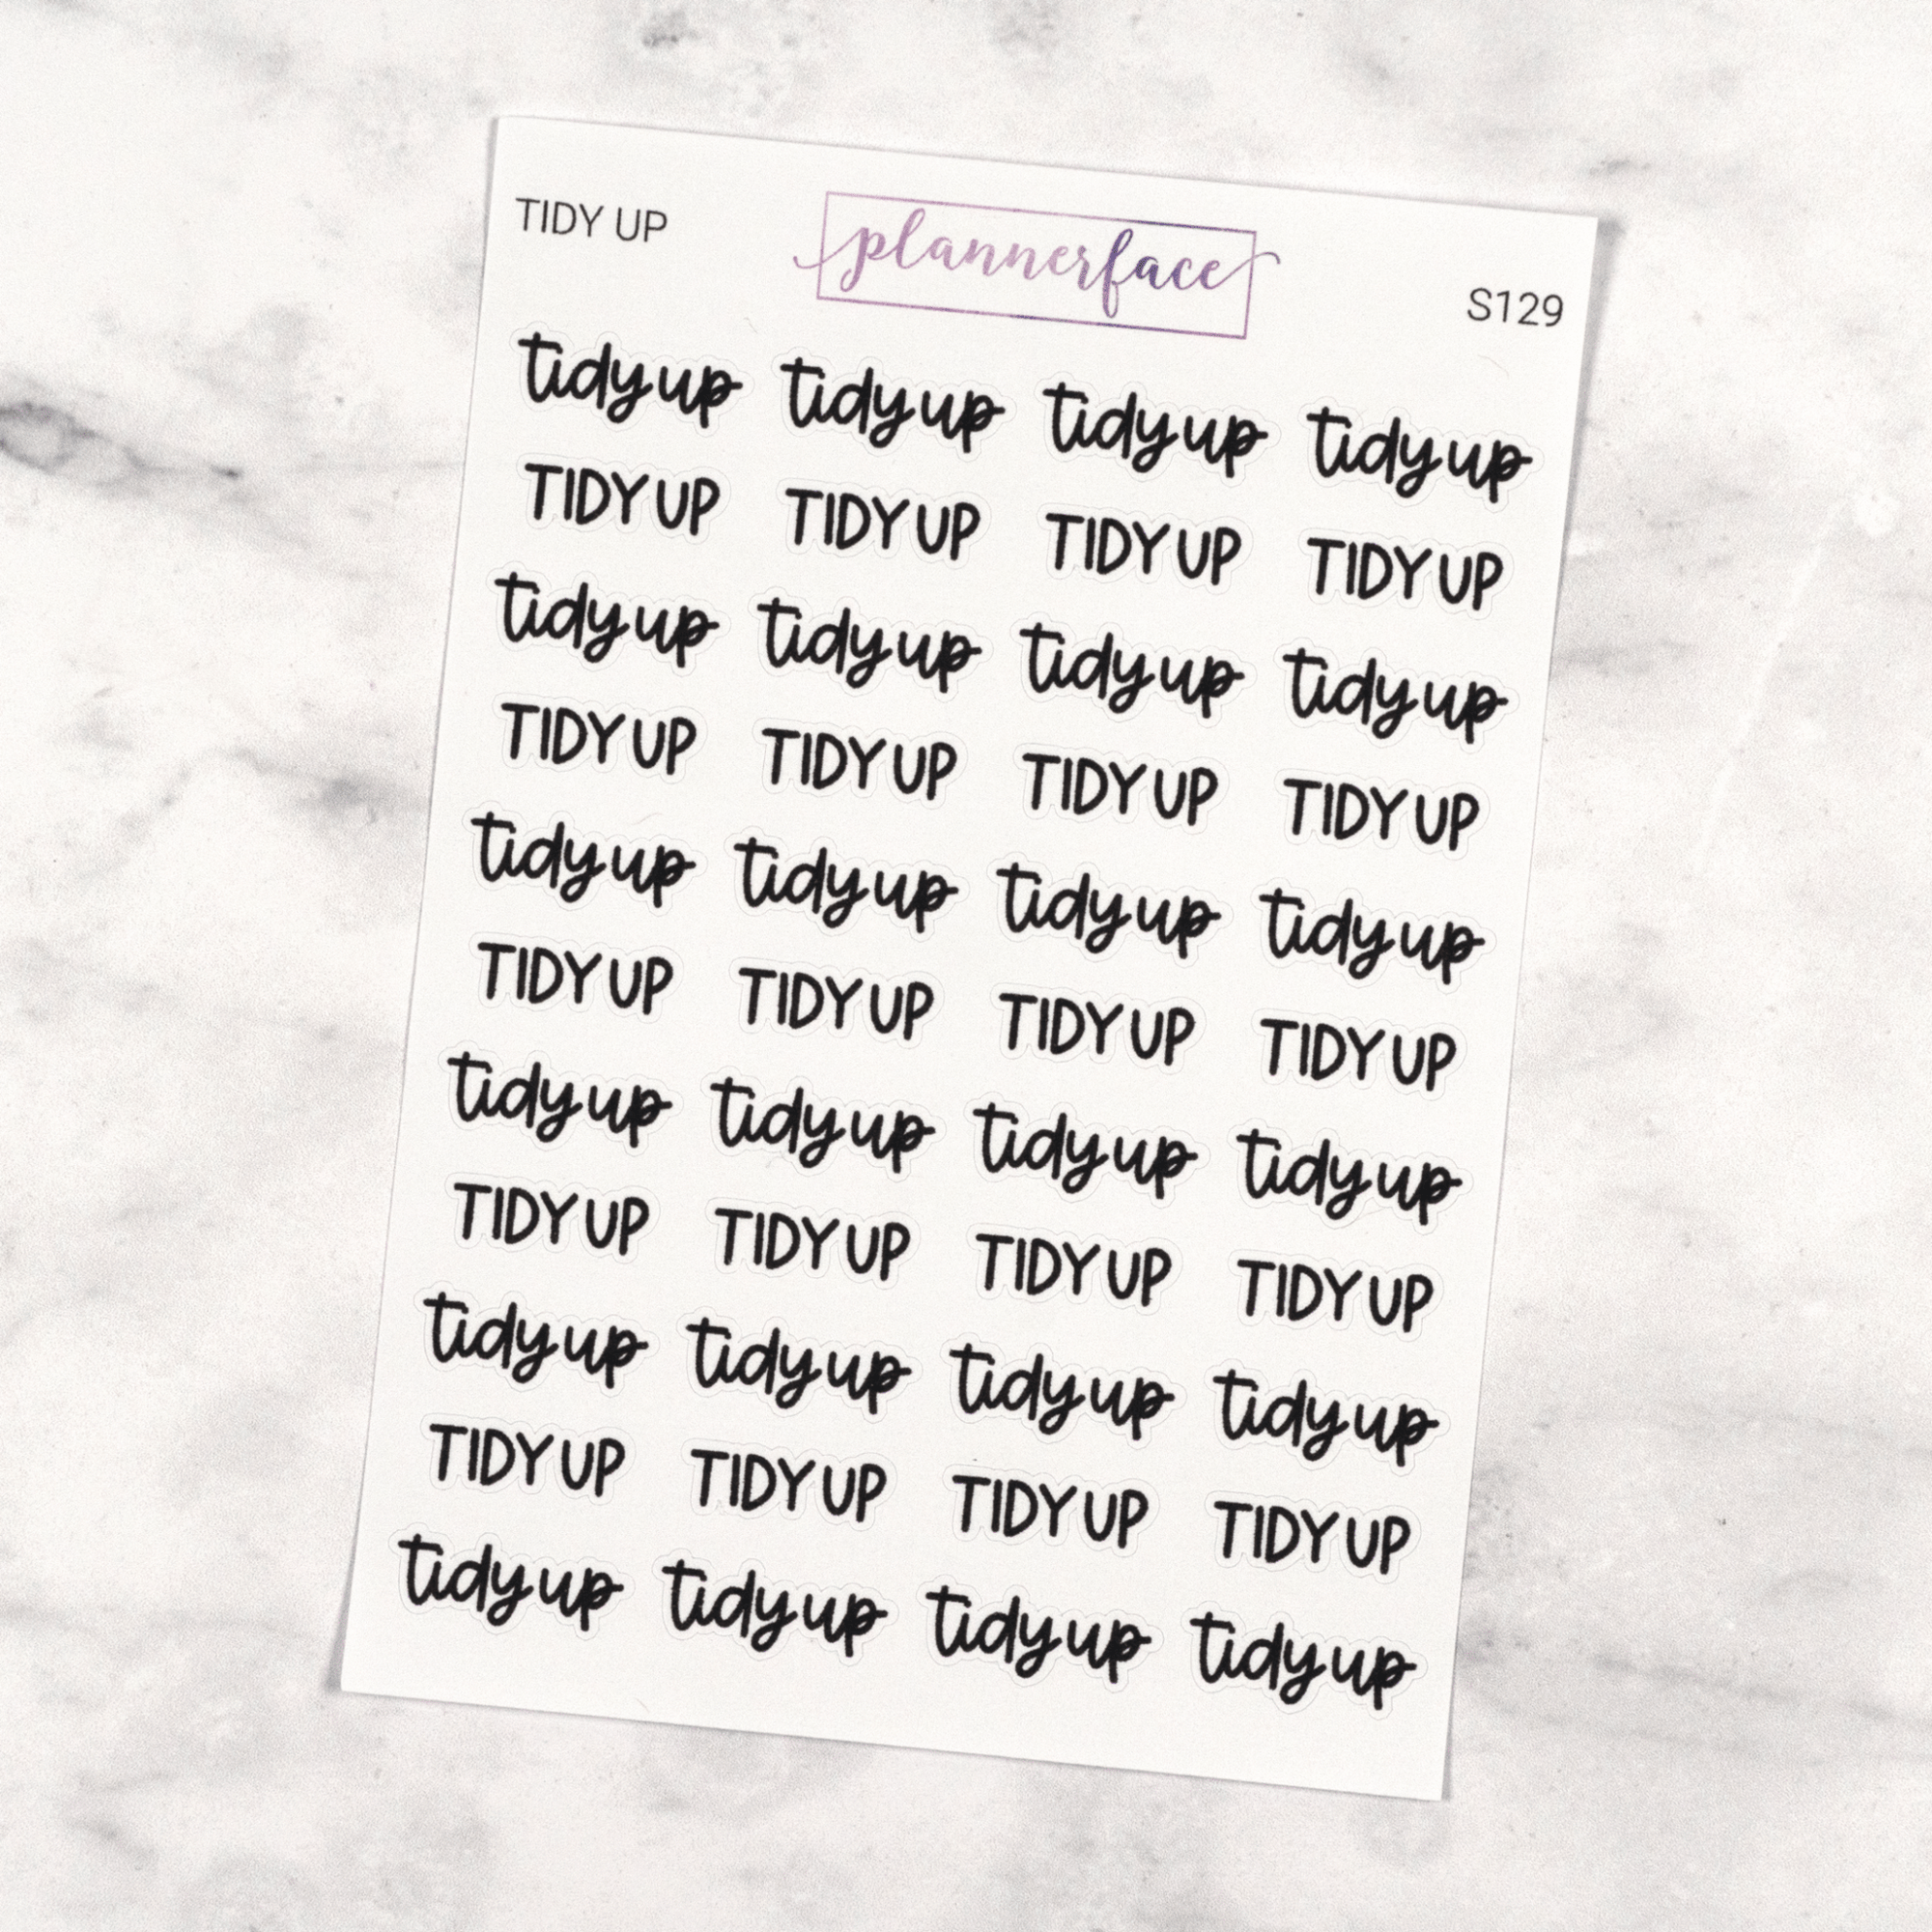 TIDY UP
plannerface
S129
tidy up tidy up tidy up tidy up
TIDY UP TIDY UP TIDY UP TIDY UP
tidy up tidy up tidy up tidy up
TIDY UP TIDY UP TIDY UP TIDY UP
tidy up tidy up tidy up tidy up
TIDY UP TIDY UP TIDY UP TIDY UP
tidy up tidy up tidy up tidy up
TIDY UP TIDY UP TIDY UP TIDY UP
tidy up tidy up tidy up tidy up
TIDY UP TIDY UP TIDY UP TIDY UP
tidy up tidy up tidy up tidy up